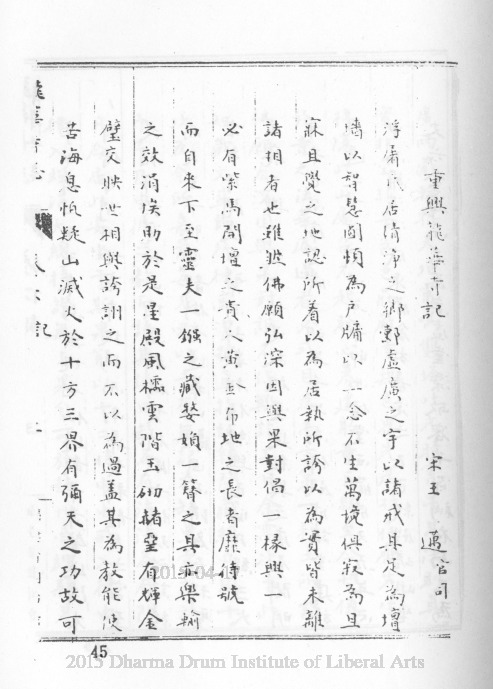 重興龍華寺記
宋王 邁 官司
浮屠氏居清淨之鄉鄞虛廣之宇以諸戒具足為壇
墻以智慧圓頓為戶牖以一念不生萬境俱寂為且
寐且覺之地認所着以為居執所誇以為實皆未離
諸相者也雖然佛願弘深因與果對偈一椽興一
必有紫馬開壇之貴人黃金布地之長者靡待號
而自來下至靈夫一鏹之藏婺媍一簪之具亦樂輸
之效涓埃助於是星殿風櫺雲階玉砌赭堊有輝金
璧交映世相與誇詡之而不以為過盖其為教能使
苦海息怖疑山滅火於十方三界有彌天之功故可
龍華寺志
卷六 記
45
2015 Dharma Drum Institute of Liberal Arts